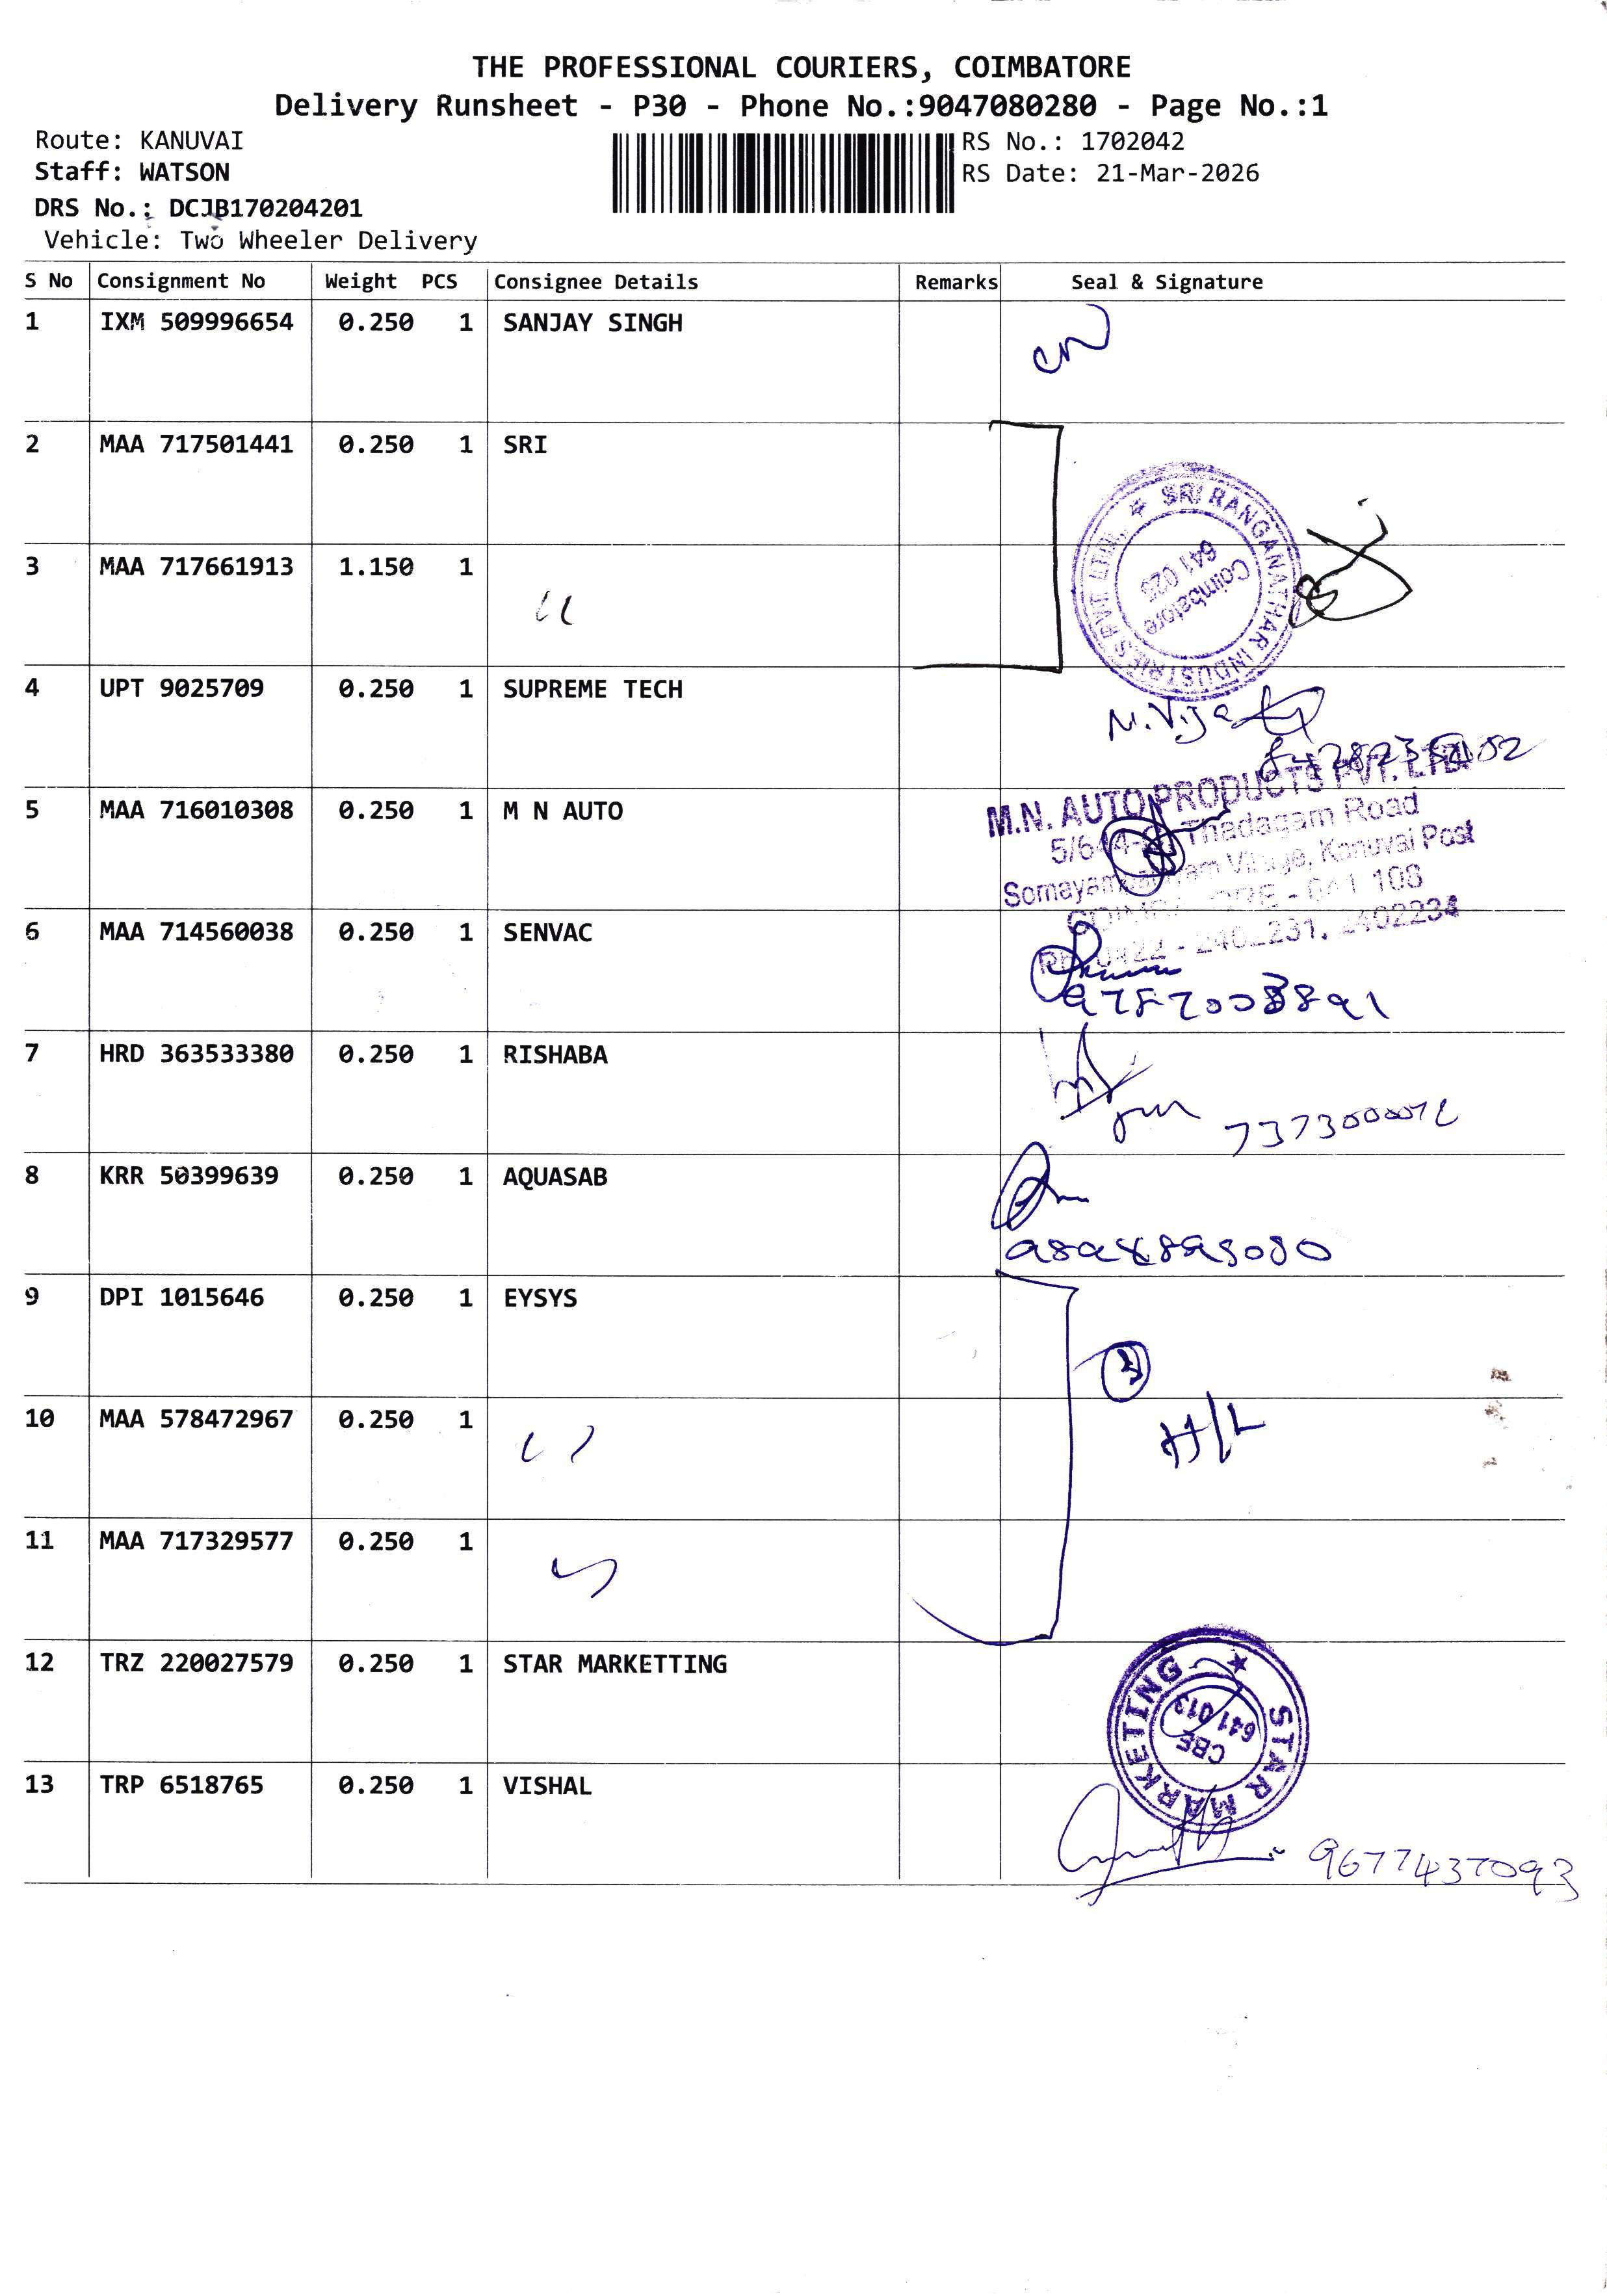 THE PROFESSIONAL COURIERS, COIMBATORE
Delivery Runsheet - P30 - Phone No.:9047080280 - Page No.:1
Route: KANUVAI
RS No.: 1702042
Staff: WATSON
RS Date: 21-Mar-2026
DRS No.: DCJB170204201
Vehicle: Two Wheeler Delivery
S No Consignment No Weight PCS Consignee Details Remarks Seal & Signature
1 IXM 509996654 0.250 1 SANJAY SINGH
2 MAA 717501441 0.250 1 SRI
SRI RANGANATHAR INDUSTRIES PVT LTD.
Coimbatore
641 025
3 MAA 717661913 1.150 1
4 UPT 9025709 0.250 1 SUPREME TECH
5 MAA 716010308 0.250 1 M N AUTO
M.N. AUTO PRODUCTS PVT. LTD
Thadagam Road
Kanuvai Post
641 108
2402234
6 MAA 714560038 0.250 1 SENVAC
9787008891
7 HRD 363533380 0.250 1 RISHABA
8 KRR 50399639 0.250 1 AQUASAB
9 DPI 1015646 0.250 1 EYSYS
10 MAA 578472967 0.250 1
H/L
11 MAA 717329577 0.250 1
12 TRZ 220027579 0.250 1 STAR MARKETTING
STAR MARKETING
CBE
641 013
13 TRP 6518765 0.250 1 VISHAL
9677437093